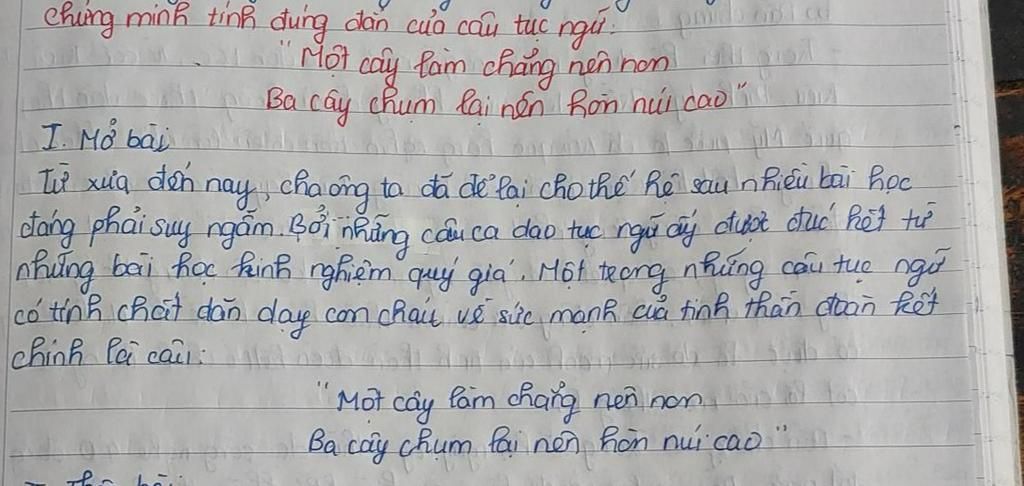 chứng minh tính đúng đắn của câu tục ngữ:
"Một cây làm chẳng nên non
Ba cây chụm lại nên hòn núi cao"
I. Mở bài
Từ xưa đến nay, cha ông ta đã để lại cho thế hệ sau nhiều bài học
đáng phải suy ngẫm. Bởi những câu ca dao tục ngữ ấy được đúc kết từ
những bài học kinh nghiệm quý giá. Một trong những câu tục ngữ
có tính chất dăn dạy con cháu về sức mạnh của tinh thần đoàn kết
chính là câu:
"Một cây làm chẳng nên non
Ba cây chụm lại nên hòn núi cao"